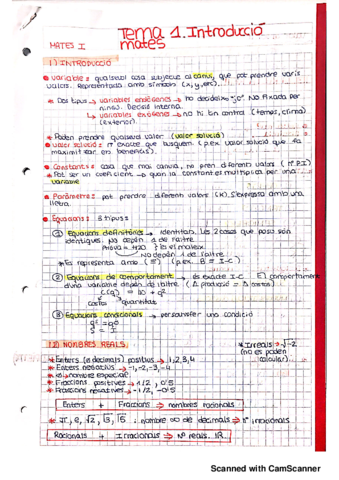 Tema 1. Introducció
MATES I mates
1) INTRODUCCIÓ
• variable: qualsevol cosa subjecte al canvi, que pot prendre varis
valors. Representada amb símbols (x,y,etc).
• Dos tipus → variables endògenes → ho decideixo "jo". No fixada per
ningú. Decisió interna.
↳ variables exògenes → no hi tinc control (temes, clima)
(exterior)
* Poden prendre qualsevol valor (valor solució)
• valor solució: nº exacte que busquem (p.ex valor solució que fa
maximitzar en beneficis).
• Constants: cosa que mai canvia, no pren diferents valors (nº PI)
* Pot ser un coeficient → quan la constant es multiplica per una
variable
• Paràmetre: pot prendre diferents valors (K). S'expressa amb una
lletra.
• Equacions: 3 tipus:
① Equacions definitòries → Identitats, les 2 coses que poso són
idèntiques. No depèn 1 de l'altre
} És el mateix
No depèn 1 de l'altre
* Es representa amb (≡) (p.ex. B ≡ I-C)
② Equacions de comportament → és exacte I-C El comportament
d'una variable depèn de l'altre (Δ producció = Δ costos)
C(q) = 10 + q²
costos quantitat
③ Equacions condicionals → per satisfer una condició
S = I
1.2) NOMBRES REALS
* Enters (o decimals) positius → 1,2,3,4
* Enters negatius → -1,-2,-3,-4
* Irreals → √-2
(no es poden
calcular)
* 0 → nombre especial.
* Fraccions positives → 1/2, 0'5
* Fraccions negatives → -1/2, -0'5
Enters + Fraccions → nombres racionals
* π, e, √2, √3, √5 : nombre ∞ de decimals → nº irracionals
Racionals + Irracionals → Nº reals. IR
Scanned with CamScanner